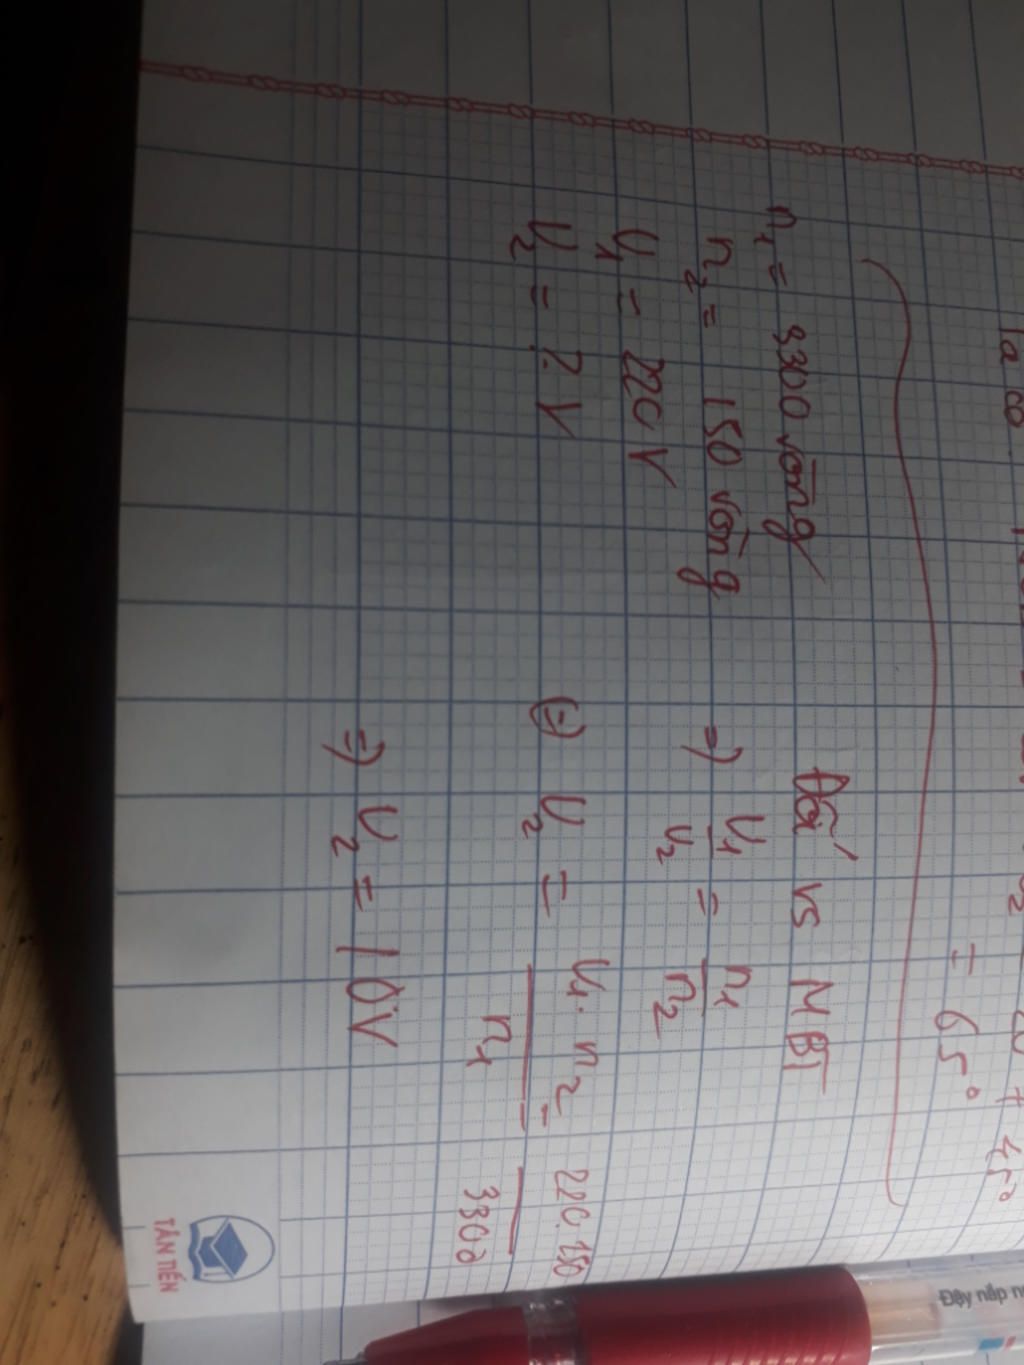 Ta có
= 65°
n₁ = 3300 vòng
n₂ = 150 vòng
U₁ = 220 V
U₂ = ? V
Đối vs MBT
=) U₁/U₂ = n₁/n₂
(=) U₂ = U₁.n₂/n₁ = 220.150/3300
=) U₂ = 10V
TÂN TIẾN
Đậy nắp